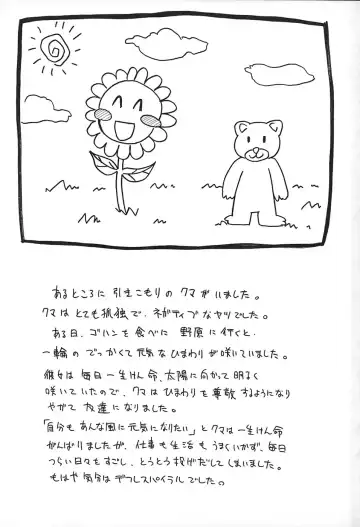 あるところに引きこもりのクマがいました。
クマはとても孤独で、ネガティブなヤツでした。
ある日、ゴハンを食べに野原に行くと、
一輪のでっかくて元気なひまわりが咲いていました。
彼女は毎日一生けん命、太陽に向かって明るく
咲いていたので、クマはひまわりを尊敬するようになり
やがて友達になりました。
「自分もあんな風に元気になりたい」とクマは一生けん命
がんばりましたが、仕事も生活もうまくいかず、毎日
つらい日々をすごし、とうとう投げだしてしまいました。
もはや気分はデフレスパイラルでした。